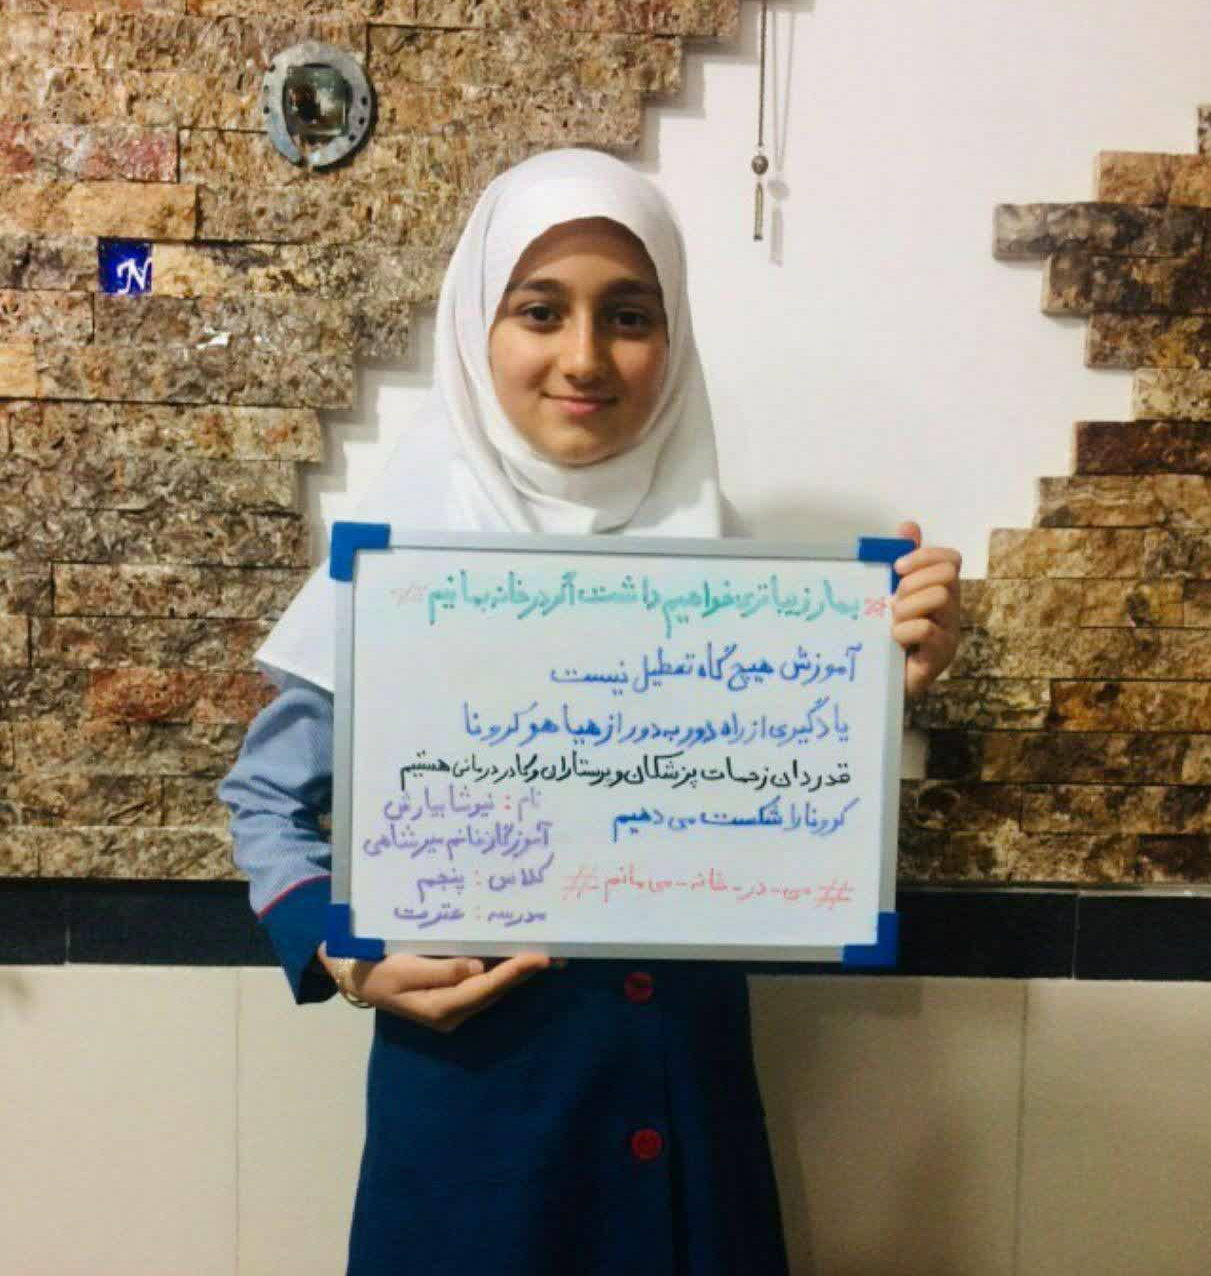 # بهار زیباتری خواهیم داشت اگر در خانه بمانیم #
آموزش هیچ گاه تعطیل نیست
یادگیری از راه دور به دور از هیاهو کرونا
قدردان زحمات پزشکان و پرستاران و کادر درمانی هستیم
کرونا را شکست می دهیم
# می - در - خانه - می مانم #
نام : نیوشا بیارش
آموزگار خانم میرشاهی
کلاس : پنجم
مدرسه : عترت
N